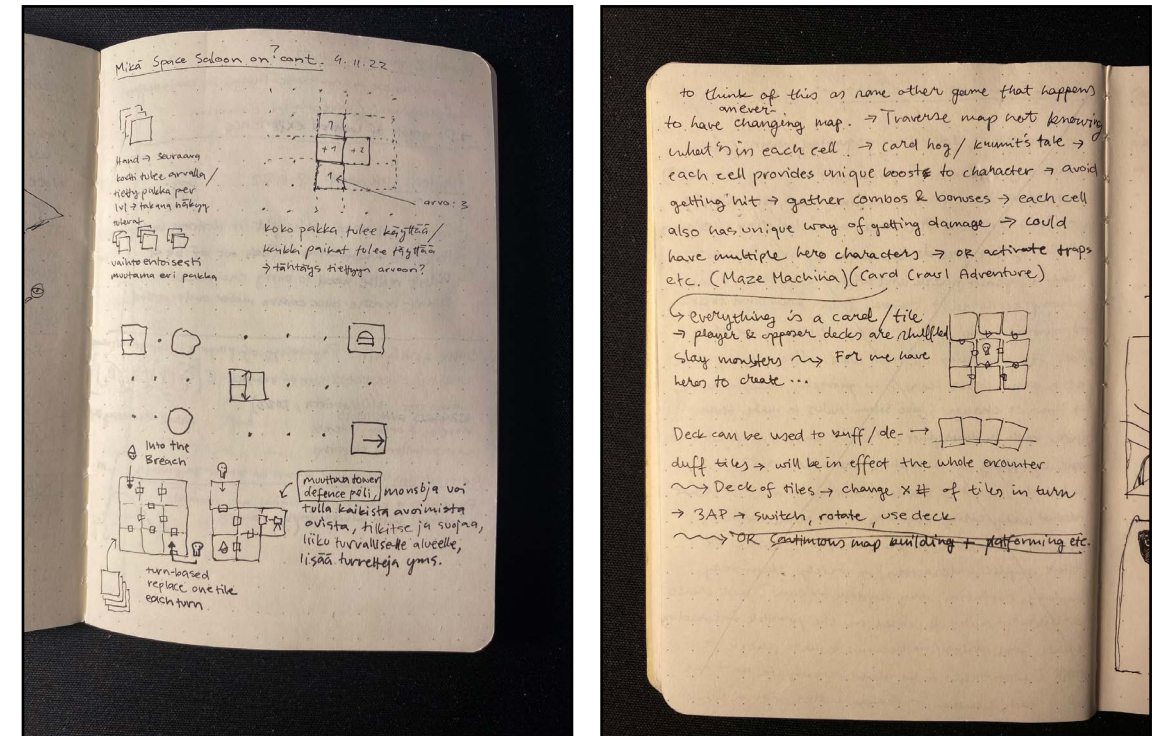 Mikä Space Saloon on? cont. 9.11.22
1
+1 +2
1
arvo: 3
Hand → seuraava
kortti tulee arvalla/
tietty pakka per
lvl → takana näkyy
tulevat
vaihtoehtoisesti
muutama eri pakka
koko pakka tulee käyttää/
kaikki paikat tulee täyttää
→ tähtäys tiettyyn arvoon?
Into the
Breach
muuttuva tower
defence peli, monsbja voi
tulla kaikista avoimista
ovista, tilkitse ja suojaa,
liiku turvalliselle alueelle,
lisää turretteja yms.
turn-based
replace one tile
each turn
to think of this as some other game that happens
an ever-
to have changing map. → Traverse map not knowing
what's in each cell. → card hog/krumit's tale →
each cell provides unique boosts to character → avoid
getting hit → gather combos & bonuses → each cell
also has unique way of getting damage → could
have multiple hero characters → OR activate traps
etc. (Maze Machina)(Card Crawl Adventure)
↳ everything is a card/tile
→ player & opposer decks are shuffled
slay monsters ⟿ For me have
heros to create...
Deck can be used to buff/de- →
duff tiles → will be in effect the whole encounter
⟿ Deck of tiles → change x # of tiles in turn
→ 3AP → switch, rotate, use deck
⟿ OR continuous map building + platforming etc.